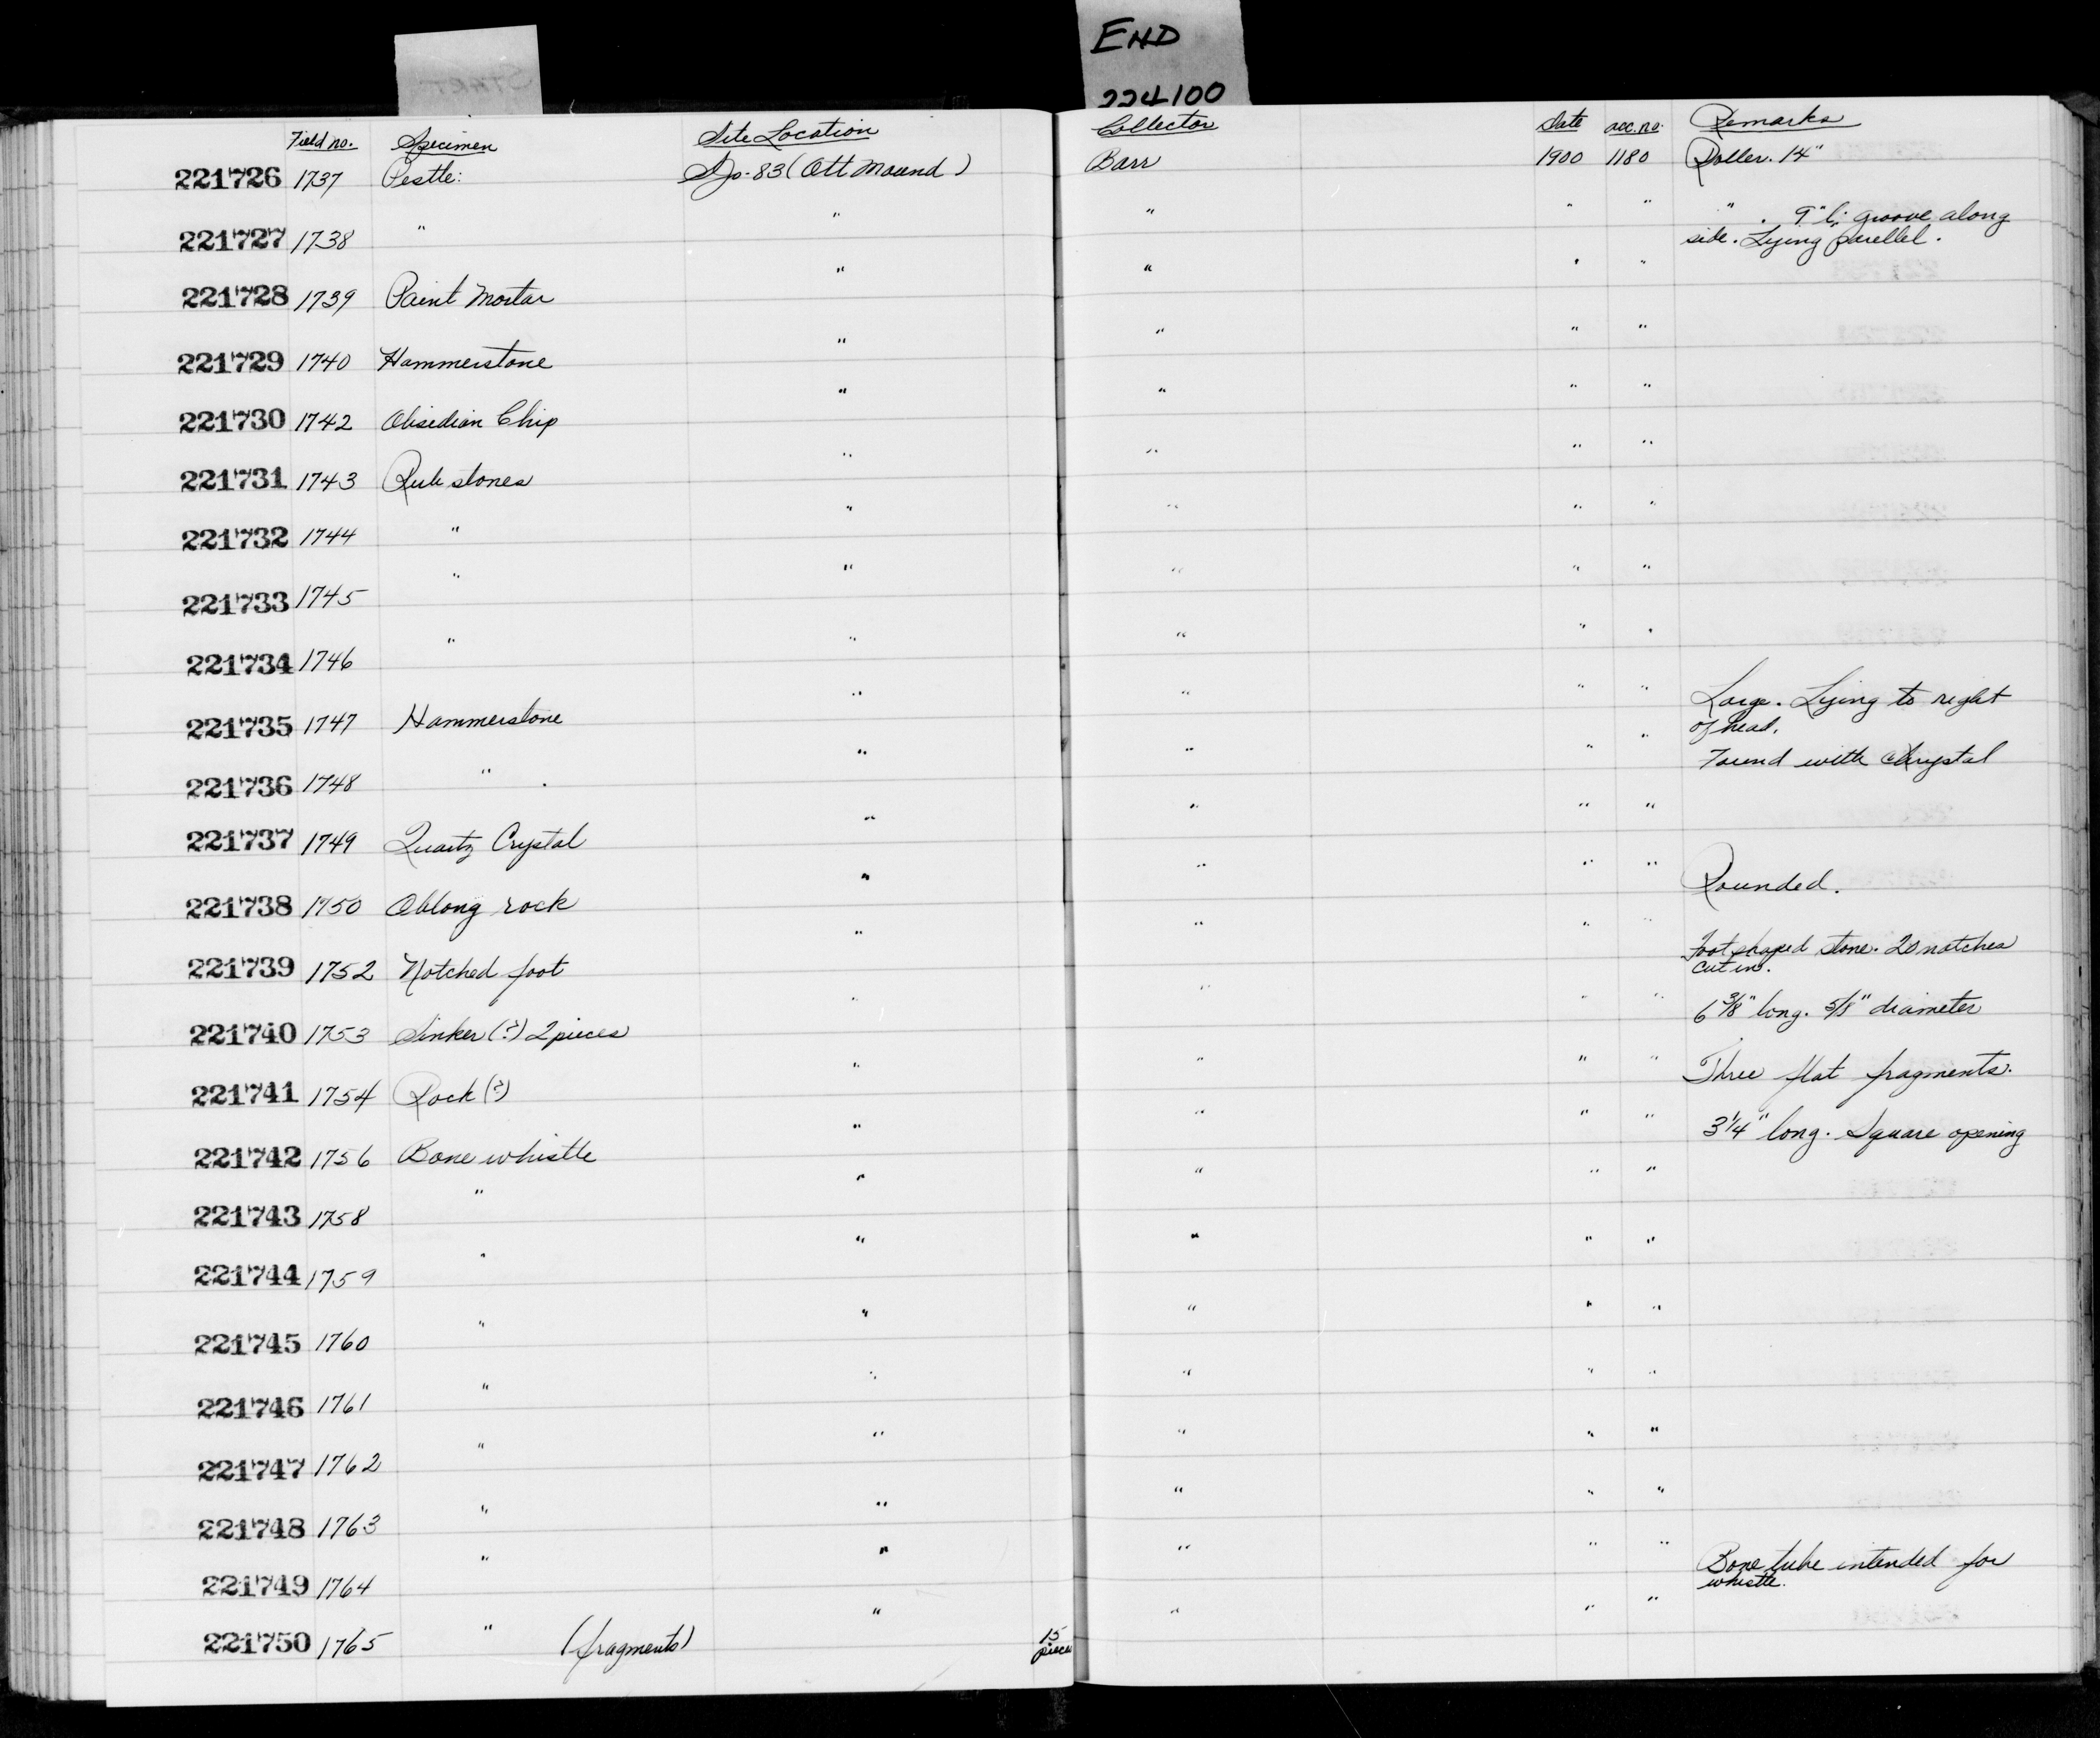 START
END
224100
Field no. Specimen Site Location Collector Date acc. no. Remarks
221726 1737 Pestle: SJo-83 (Ott Mound) Barr 1900 1180 Roller. 14"
221727 1738 " " " " " " . 9" l; groove along
side. Lying parellel.
221728 1739 Paint Mortar " " " "
221729 1740 Hammerstone " " " "
221730 1742 Obsidian Chip " " " "
221731 1743 Rub stones " " " "
221732 1744 " " " " "
221733 1745 " " " " "
221734 1746 " " " " "
221735 1747 Hammerstone " " " " Large. Lying to right
of head.
221736 1748 " . " " " " Found with crystal
221737 1749 Quartz Crystal " " " "
221738 1750 Oblong rock " " " " Rounded.
221739 1752 Notched foot " " " " Foot shaped stone. 20 notches
cut in.
221740 1753 Sinker (?) 2 pieces " " " " 6 3/8" long. 5/8" diameter
221741 1754 Rock (?) " " " " Three flat fragments.
221742 1756 Bone whistle " " " " 3 1/4" long. Square opening
221743 1758 " " " " "
221744 1759 " " " " "
221745 1760 " " " " "
221746 1761 " " " " "
221747 1762 " " " " "
221748 1763 " " " " "
221749 1764 " " " " " Bone tube intended for
whistle.
221750 1765 " (fragments) " 15 " " "
pieces